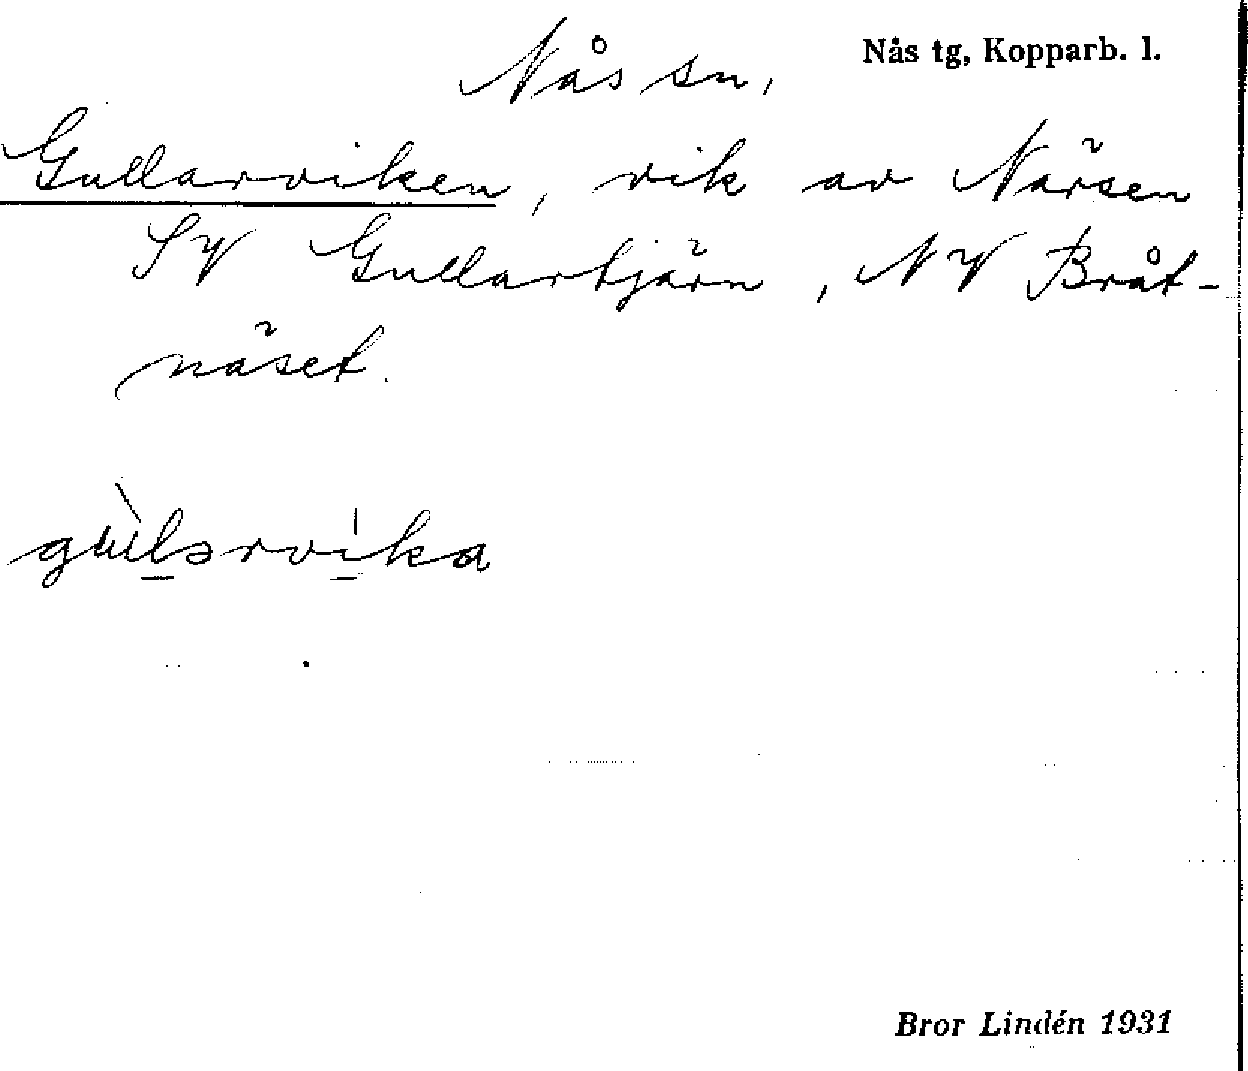 Nås sn, Nås tg, Kopparb. l.
Gullarviken, vik av Närsen
SV Gullartjärn, NV Bråt-
näset.
gùlərvika
Bror Lindén 1931